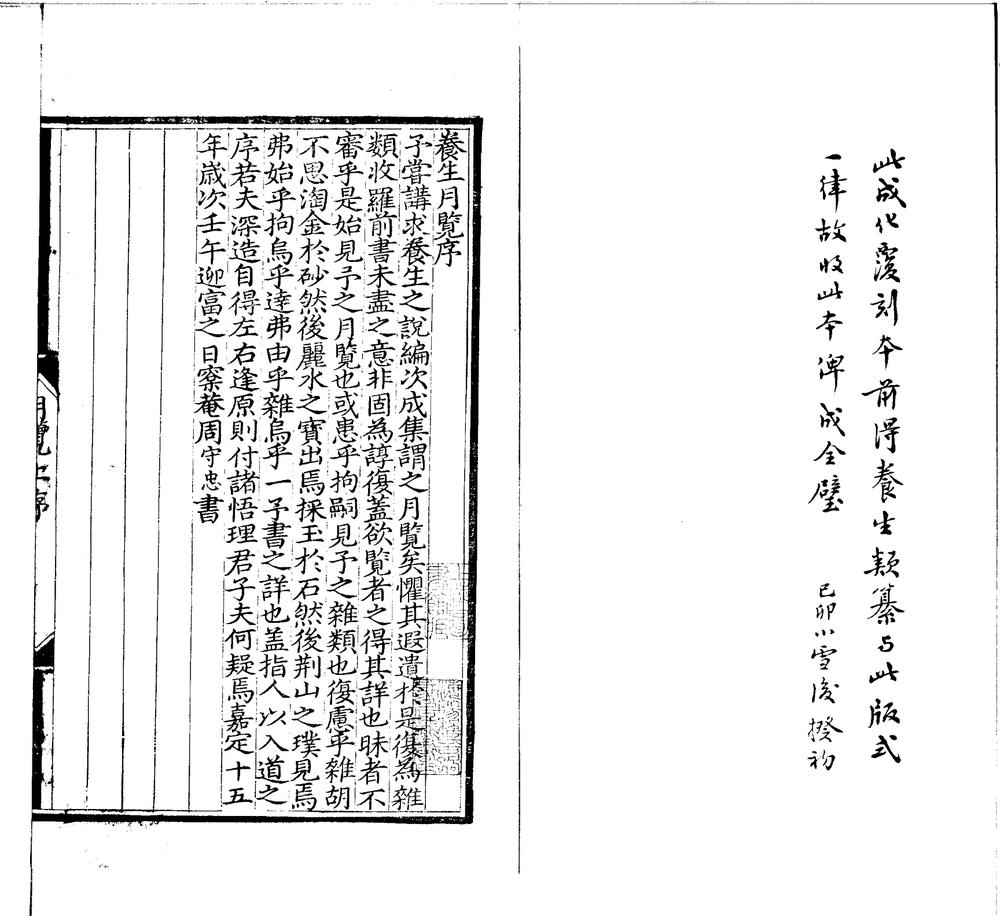 此成化覆刻本前得養生類纂与此版式
一律故收此本俾成全璧
己卯小雪後揆初
養生月覽序
予嘗講求養生之說編次成集謂之月覽矣懼其遐遺於是復為雜
類收羅前書未盡之意非固為諄復蓋欲覽者之得其詳也昧者不
審乎是始見予之月覽也或患乎拘嗣見予之雜類也復慮乎雜胡
不思淘金於砂然後麗水之寶出焉採玉於石然後荆山之璞見焉
弗始乎拘烏乎達弗由乎雜烏乎一予書之詳也盖指人以入道之
序若夫深造自得左右逢原則付諸悟理君子夫何疑焉嘉定十五
年歲次壬午迎富之日寀菴周守忠書
月覽上序